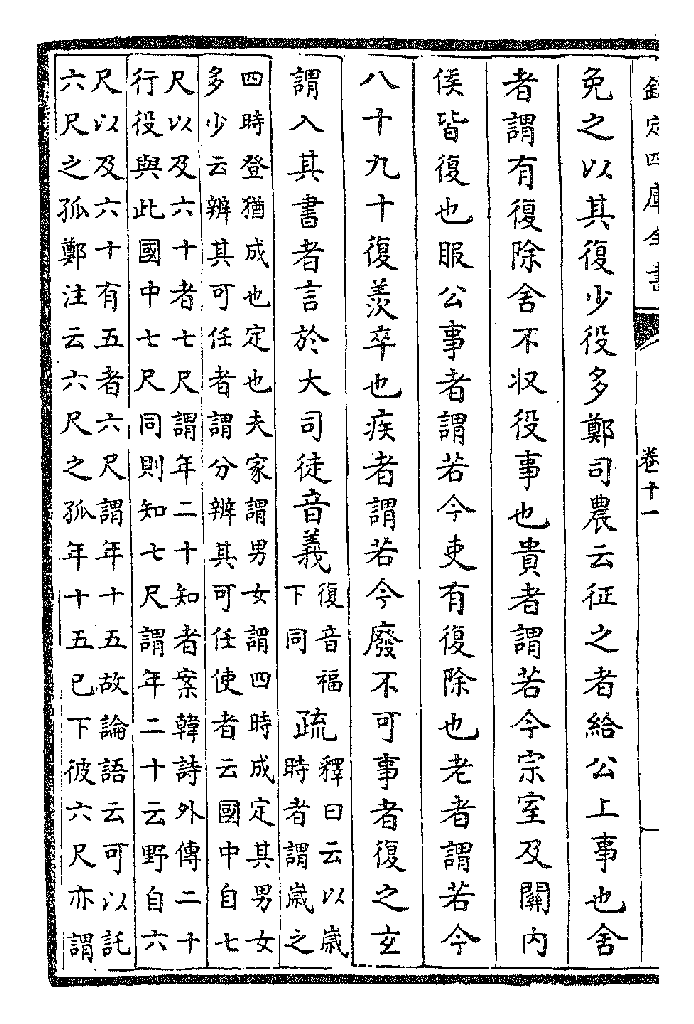 欽定四庫全書
卷十一
免之以其復少役多鄭司農云征之者給公上事也舍
者謂有復除舍不収役事也貴者謂若今宗室及關内
侯皆復也服公事者謂若今吏有復除也老者謂若今
八十九十復羡卒也疾者謂若今廢不可事者復之玄
謂入其書者言於大司徒音義
復音福
下同
疏
釋曰云以歳
時者謂歳之
四時登猶成也定也夫家謂男女謂四時成定其男女
多少云辨其可任者謂分辨其可任使者云國中自七
尺以及六十者七尺謂年二十知者案韓詩外傳二十
行役與此國中七尺同則知七尺謂年二十云野自六
尺以及六十有五者六尺謂年十五故論語云可以託
六尺之孤鄭注云六尺之孤年十五已下彼六尺亦謂